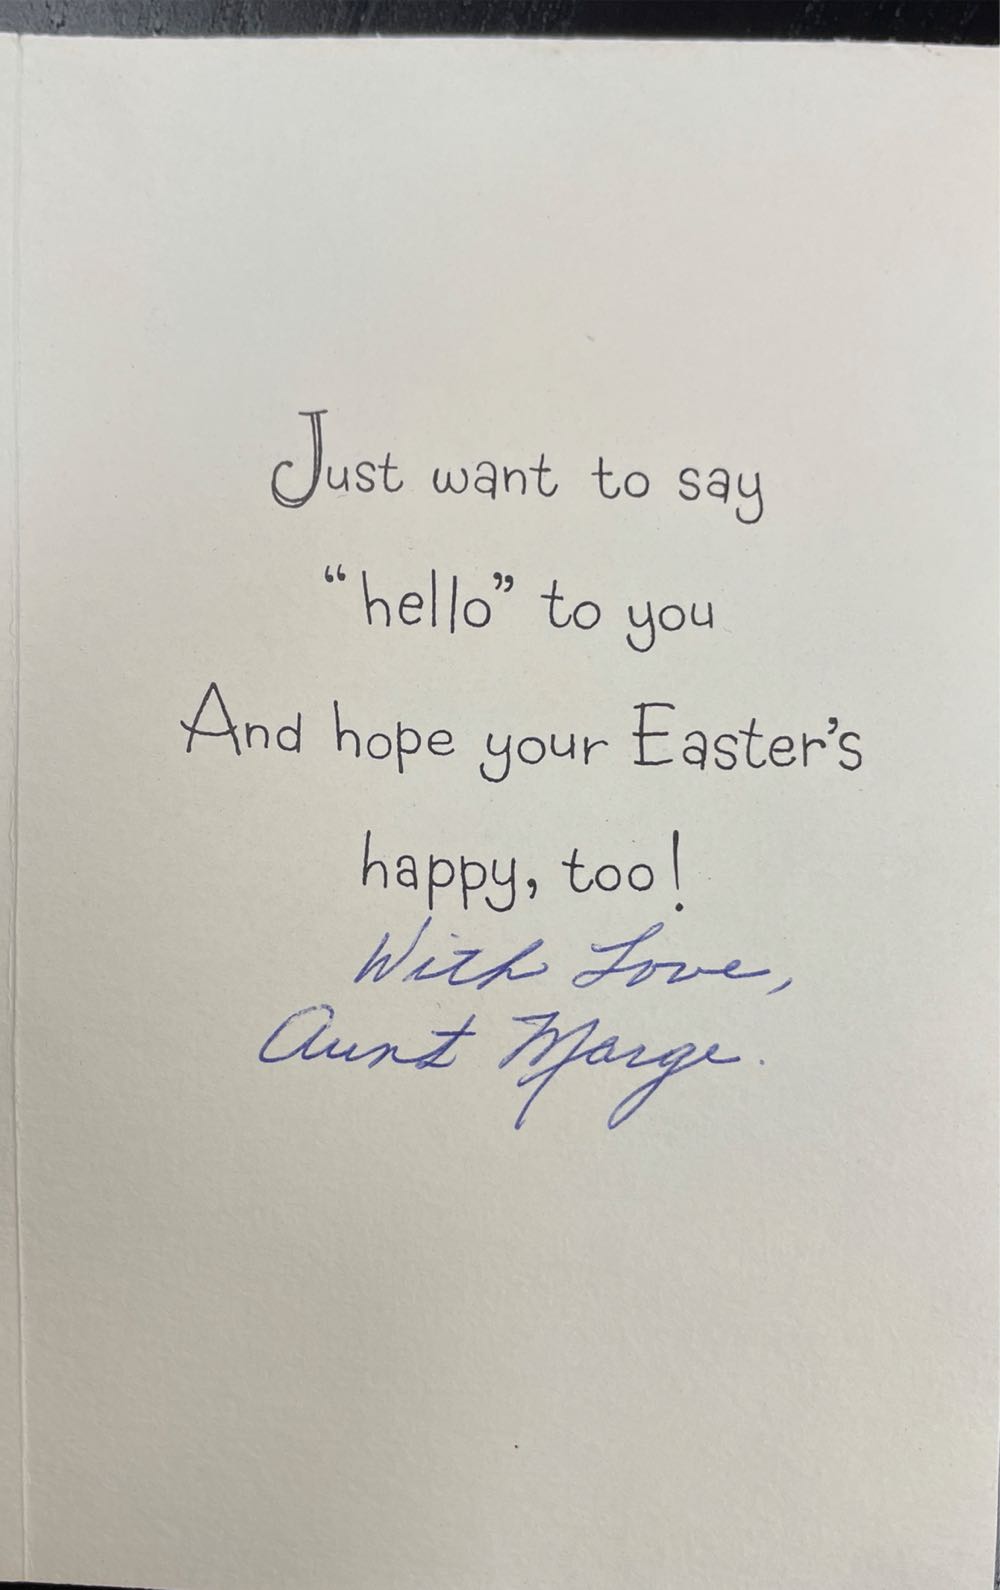 Just want to say
“hello” to you
And hope your Easter’s
happy, too!
With Love,
Aunt Marge.